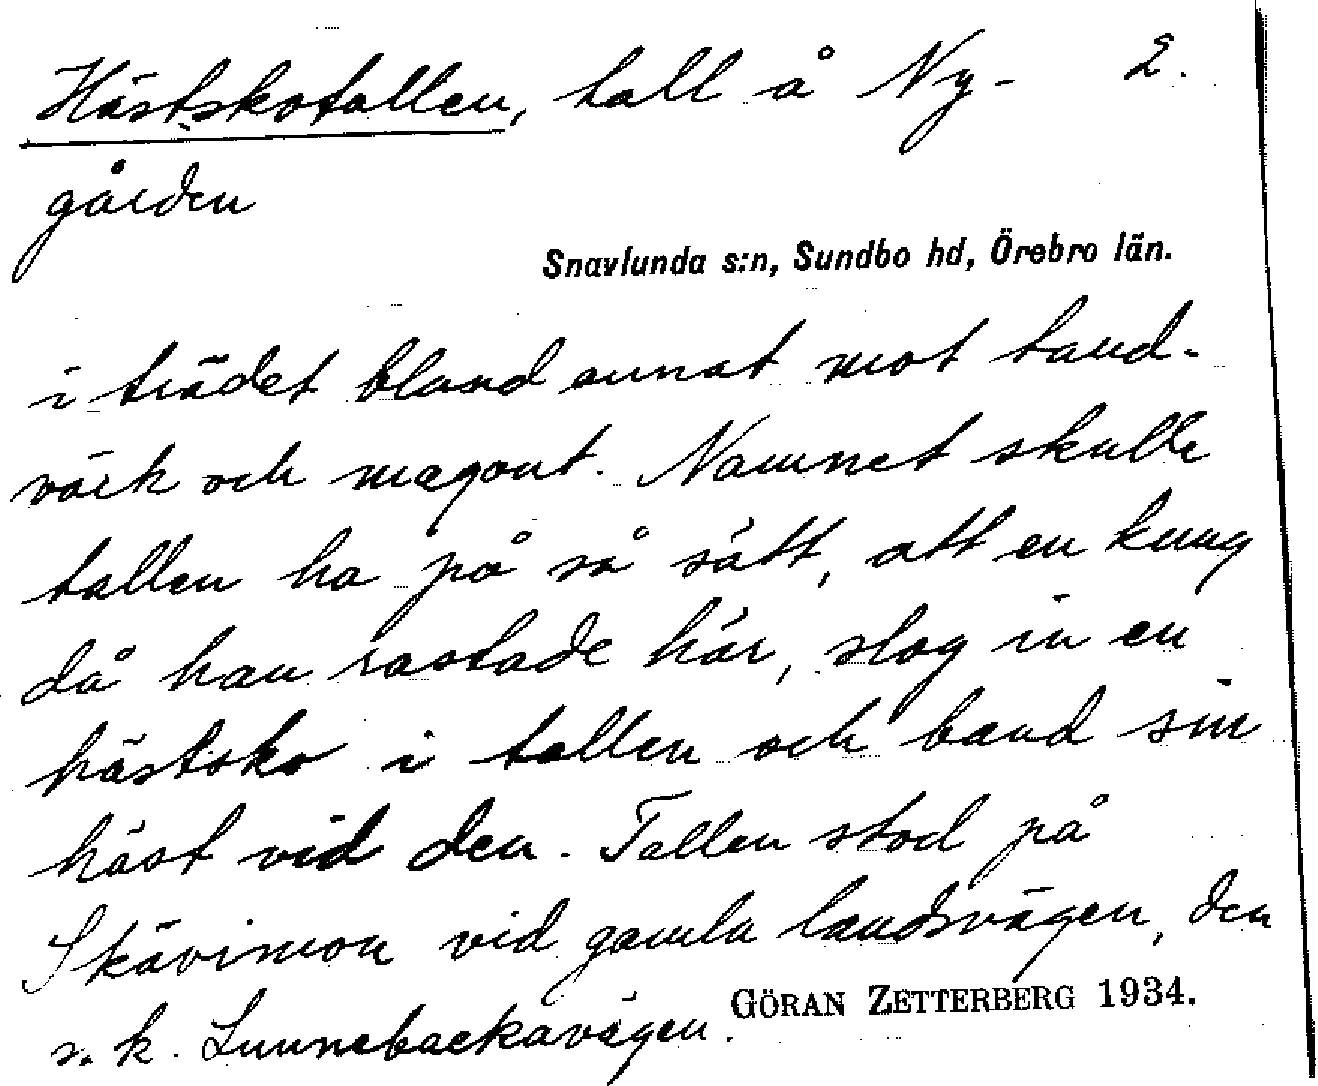 Hästskotallen, tall å Ny- 2.
gården
Snavlunda s:n, Sundbo hd, Örebro län.
i trädet bland annat mot tand-
värk och magont. Namnet skulle
tallen ha på så sätt, att en kung
då han rastade här, slog in en
hästsko i tallen och band sin
häst vid den. Tallen stod på
Skävimon vid gamla landsvägen, den
s. k. Lunnebackavägen.
GÖRAN ZETTERBERG 1934.